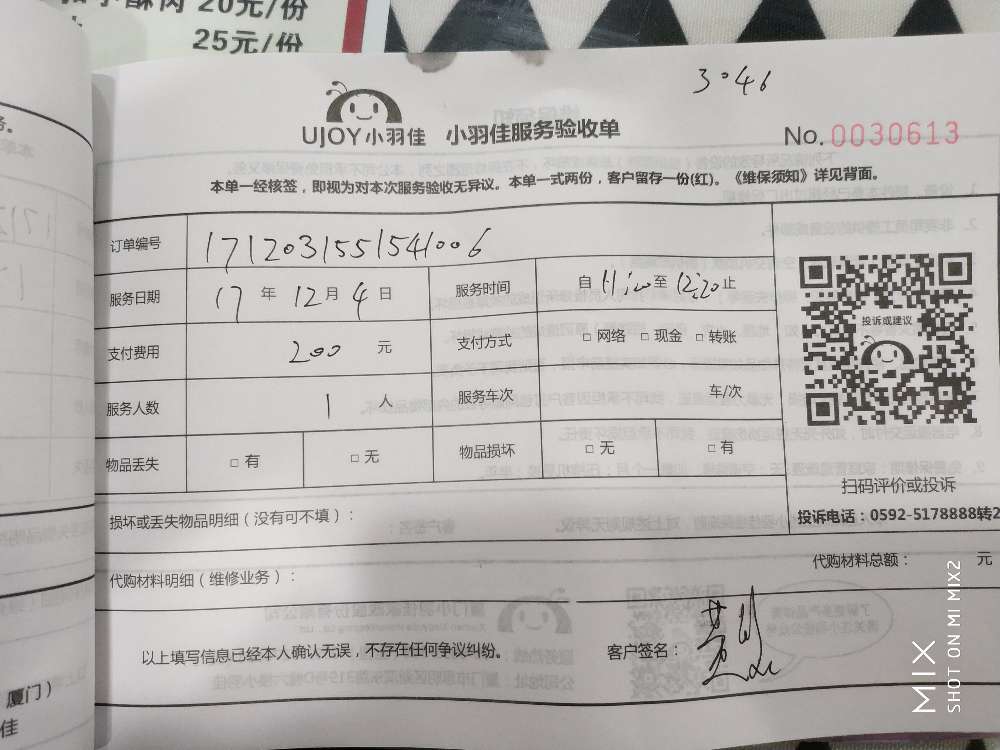 20元/份
25元/份
3046
UJOY小羽佳 小羽佳服务验收单
No. 0030613
本单一经核签，即视为对本次服务验收无异议。本单一式两份，客户留存一份(红)。《维保须知》详见背面。
订单编号 1712031551541006
服务日期 17 年 12 月 4 日 服务时间 自 11:20 至 12:20 止
投诉或建议
支付费用 200 元 支付方式 □ 网络 □ 现金 □ 转账
服务人数 1 人 服务车次 车/次
物品丢失 □ 有 □ 无 物品损坏 □ 无 □ 有
扫码评价或投诉
投诉电话：0592-5178888转2
损坏或丢失物品明细（没有可不填）：
代购材料明细（维修业务）： 代购材料总额： 元
以上填写信息已经本人确认无误，不存在任何争议纠纷。 客户签名：
厦门）
佳
MIX
SHOT ON MI MIX2